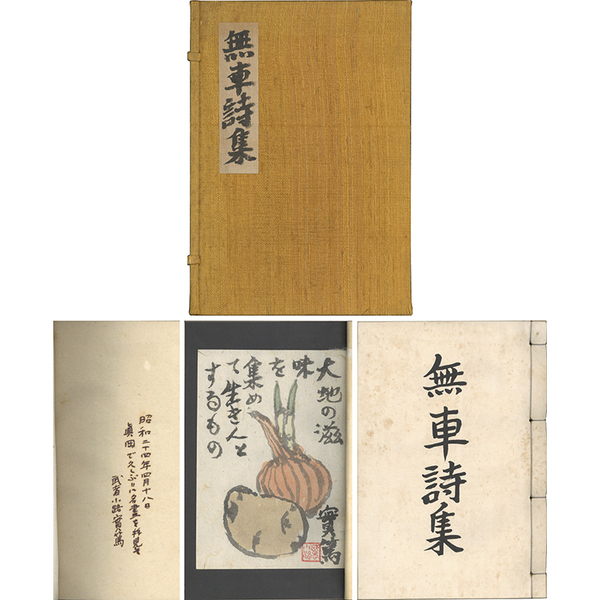 無車詩集
昭和三十四年四月十八日
眞岡で久しぶりに名畫を拝見す
武者小路實篤
大地の滋
味を
集め
て生きんと
するもの
實篤
無車詩集